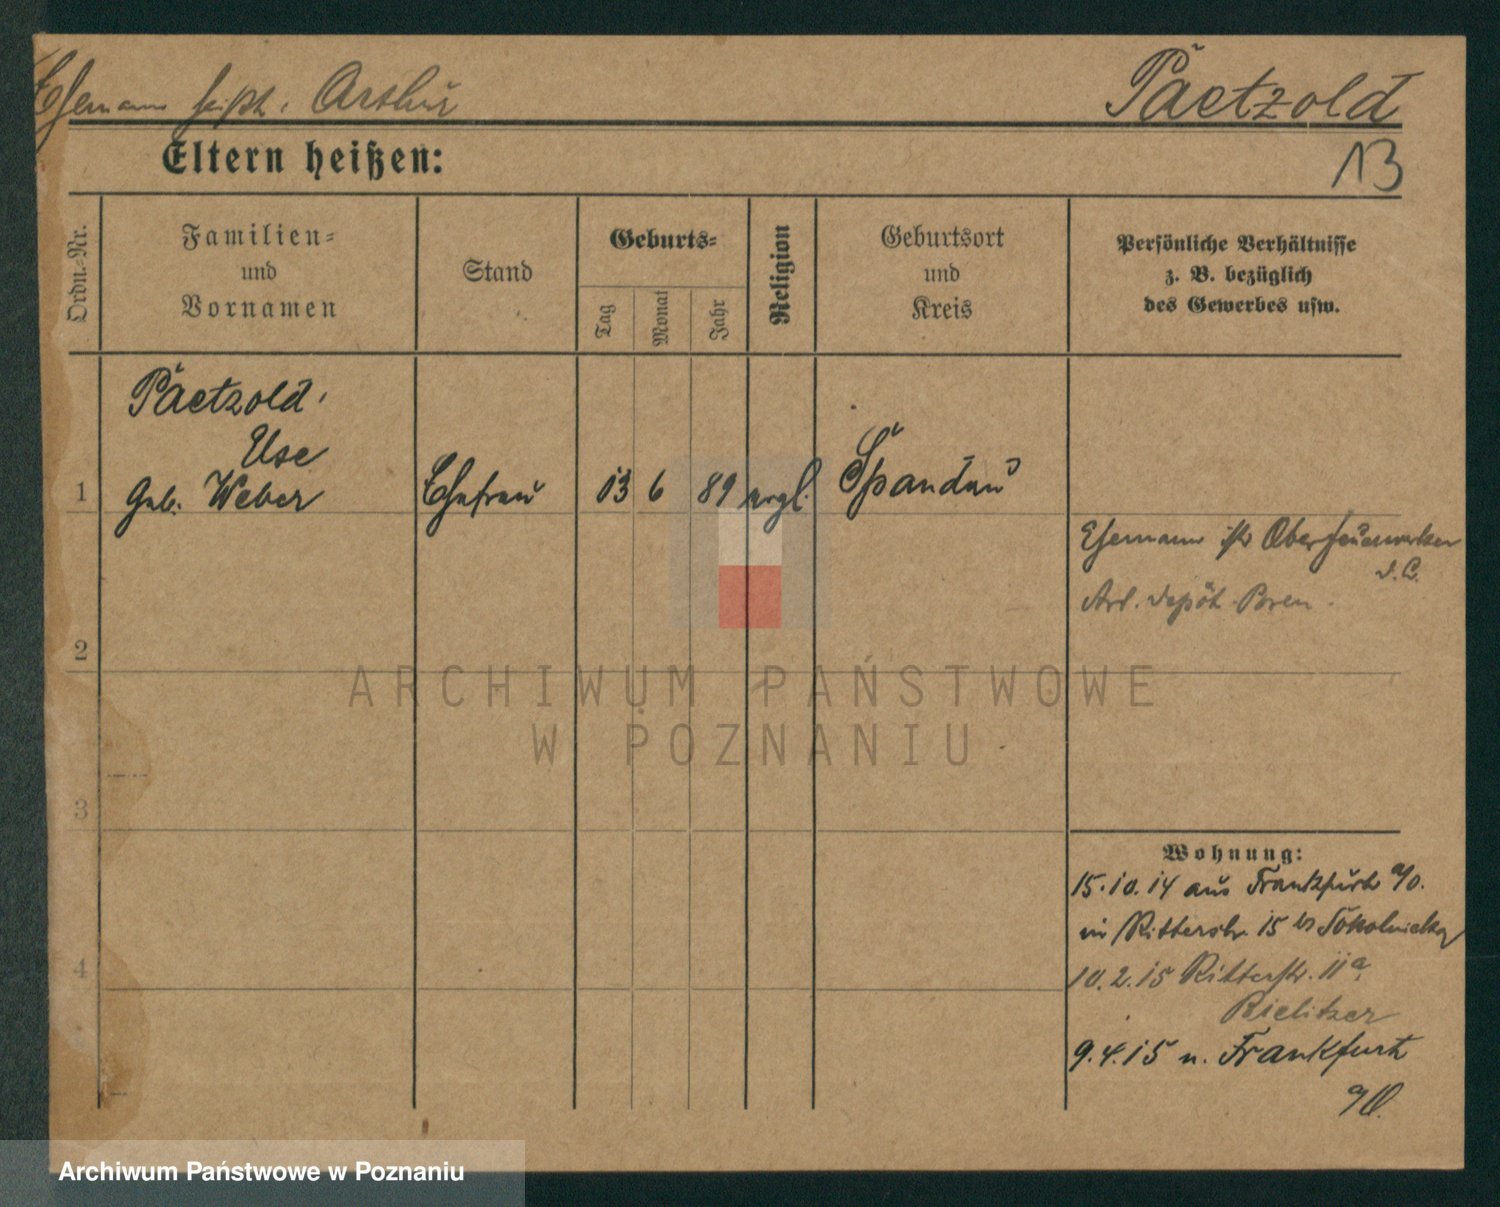 Ehemann heißt: Arthur
Paetzold
Eltern heißen:
13
Ordn.=Nr.
Familien=
und
Vornamen
Stand
Geburts=
Tag
Monat
Jahr
Religion
Geburtsort
und
Kreis
Persönliche Verhältnisse
z. B. bezüglich
des Gewerbes usw.
Paetzold,
Else
1
geb. Weber
Ehefrau
13
6
89
evgl.
Spandau
Ehemann ist Oberfeuerwerker
Art. Depot Posen.
2
3
4
Wohnung:
15.10.14 aus Frankfurt a/O.
in Ritterstr. 15 Sokolnicki
10.2.15 Ritterstr. 11a
Bielitzer
9.4.15 n. Frankfurt
a/O.
ARCHIWUM PAŃSTWOWE
W POZNANIU
Archiwum Państwowe w Poznaniu